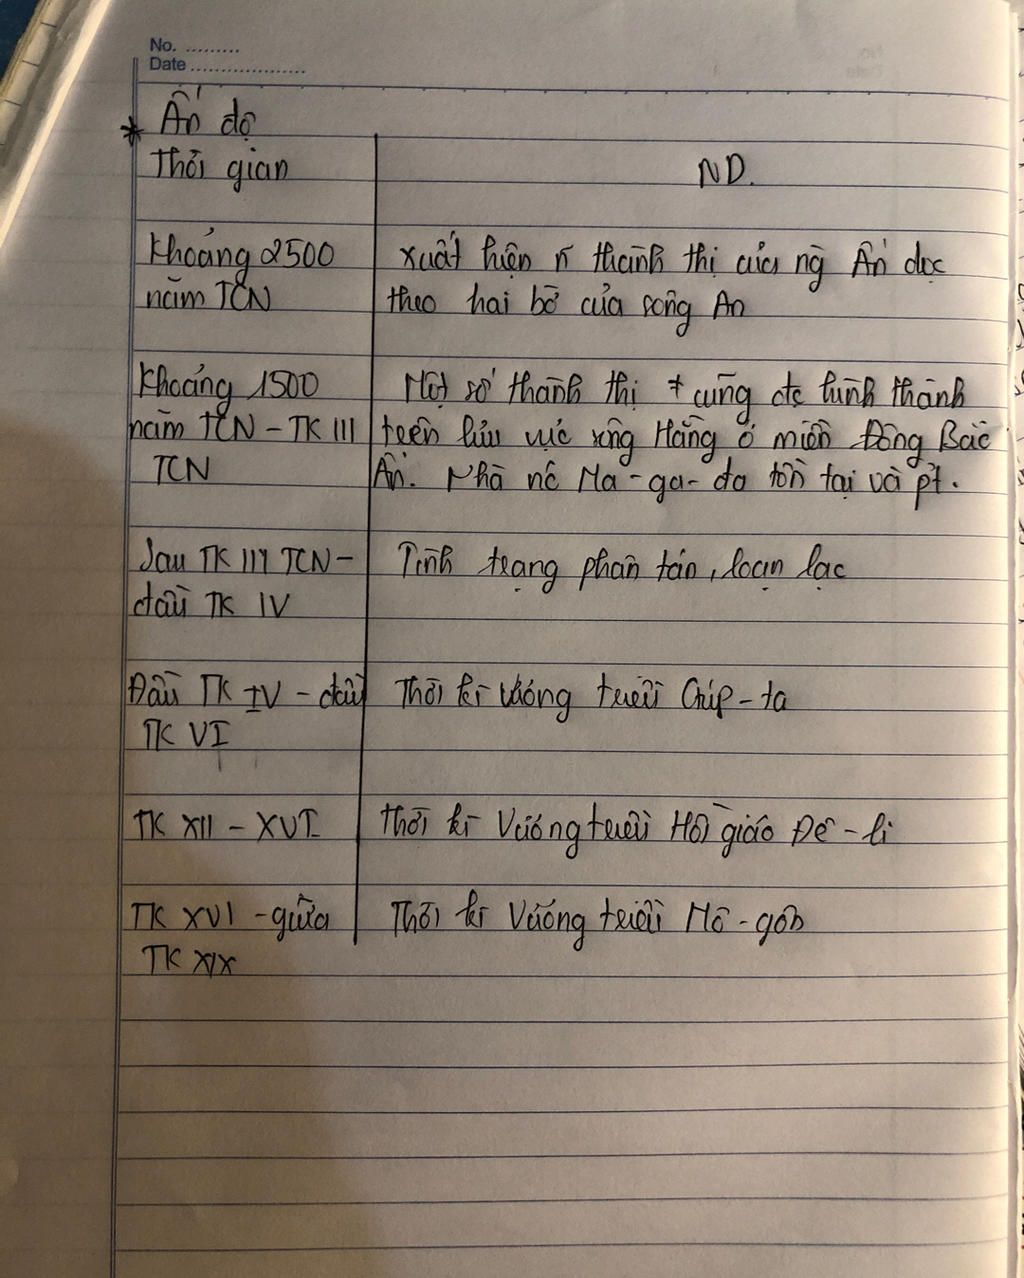 No. .........
Date ...................
* Ấn độ
Thời gian ND.
Khoảng 2500 xuất hiện n~ thành thị của ng Ấn dọc
năm TCN theo hai bờ của sông Ấn
Khoảng 1500 Một số thành thị + cũng đc hình thành
năm TCN - TK III trên lưu vực sông Hằng ở miền Đông Bắc
TCN Ấn. Nhà nc Ma-ga-đa tồn tại và pt.
Sau TK III TCN - Tình trạng phân tán, loạn lạc
đầu TK IV
Đầu TK IV - đầu Thời kì Vương triều Gúp-ta
TK VI
TK XII - XVI Thời kì Vương triều Hồi giáo Đê-li
TK XVI - giữa Thời kì Vương triều Mô-gôn
TK XIX